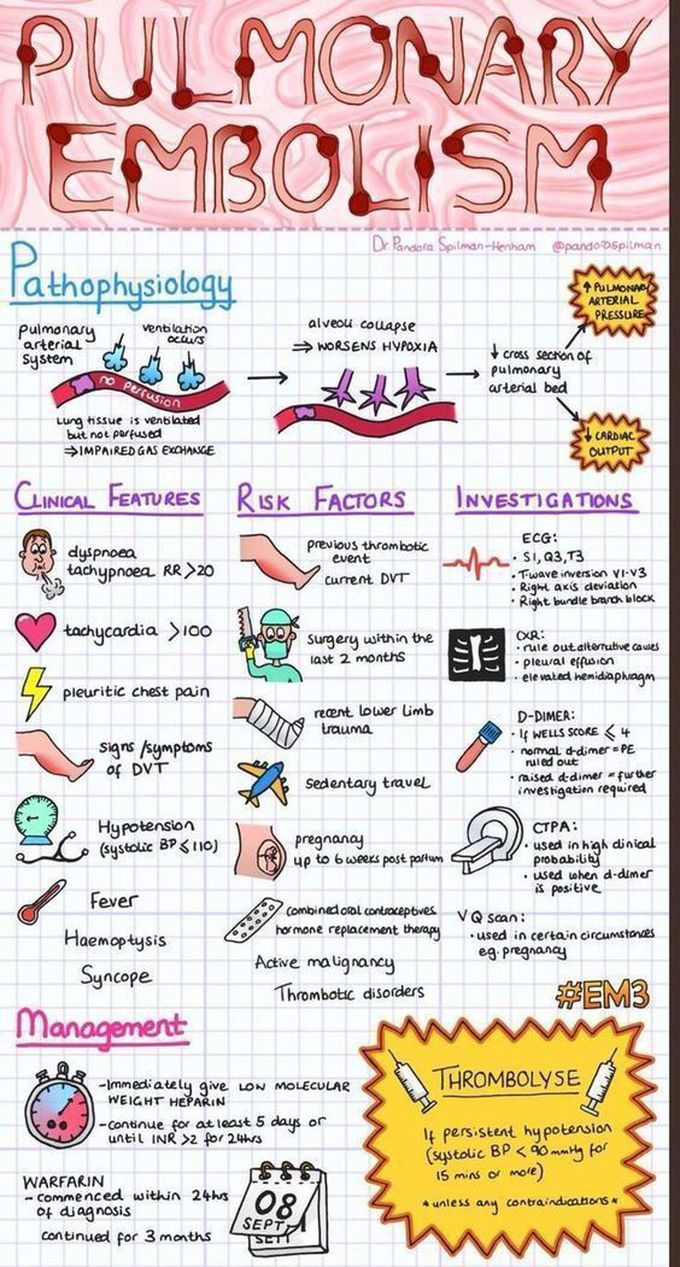 PULMONARY
EMBOLISM
Dr. Pandora Spilman-Henham @pandoraspilman
Pathophysiology
pulmonary
arterial
system
ventilation
occurs
no perfusion
Lung tissue is ventilated
but not perfused
⇒ IMPAIRED GAS EXCHANGE
alveoli collapse
⇒ WORSENS HYPOXIA
↓ cross section of
pulmonary
arterial bed
↑ PULMONARY
ARTERIAL
PRESSURE
↓ CARDIAC
OUTPUT
CLINICAL FEATURES
dyspnoea
tachypnoea RR >20
tachycardia >100
pleuritic chest pain
signs/symptoms
of DVT
Hypotension
(systolic BP ≤ 110)
Fever
Haemoptysis
Syncope
RISK FACTORS
previous thrombotic
event
current DVT
surgery within the
last 2 months
recent lower limb
trauma
sedentary travel
pregnancy
up to 6 weeks post partum
combined oral contraceptives
hormone replacement therapy
Active malignancy
Thrombotic disorders
INVESTIGATIONS
ECG:
• S1, Q3, T3
• T-wave inversion V1-V3
• Right axis deviation
• Right bundle branch block
CXR:
• rule out alternative causes
• pleural effusion
• elevated hemidiaphragm
D-DIMER:
• If WELLS SCORE ≤ 4
• normal d-dimer = PE
ruled out
• raised d-dimer = further
investigation required
CTPA:
• used in high clinical
probability
• used when d-dimer
is positive
VQ scan:
• used in certain circumstances
eg. pregnancy
#EM3
Management
- Immediately give LOW MOLECULAR
WEIGHT HEPARIN
- continue for at least 5 days or
until INR >2 for 24hrs
WARFARIN
- commenced within 24hrs
of diagnosis
continued for 3 months
08
SEPT
SEPT
THROMBOLYSE
If persistent hypotension
(systolic BP < 90 mmHg for
15 mins or more)
* unless any contraindications *